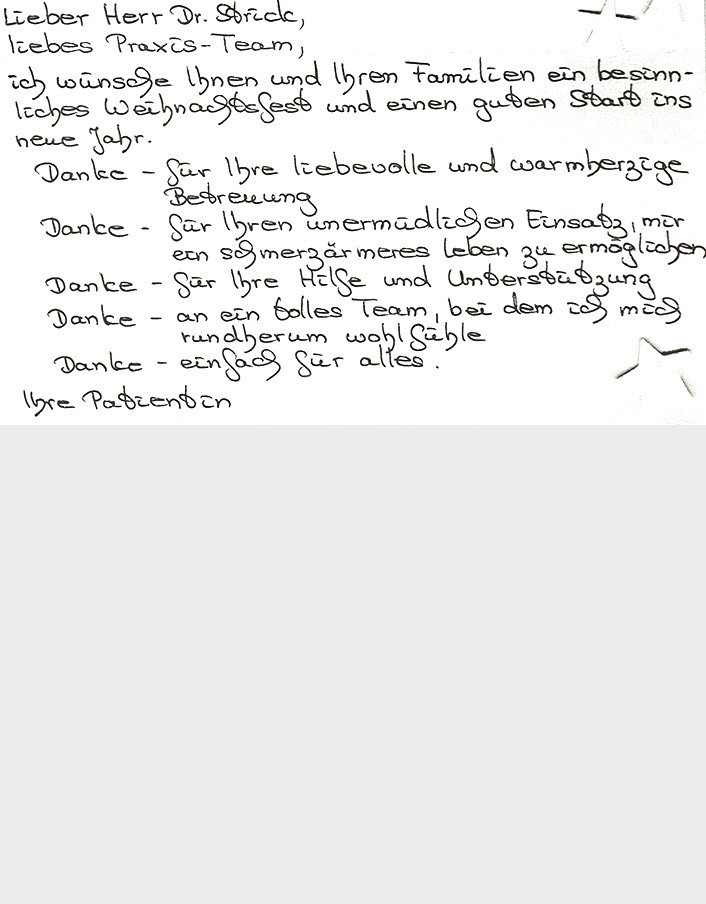 Lieber Herr Dr. Strick,
liebes Praxis-Team,
ich wünsche Ihnen und Ihren Familien ein besinn-
liches Weihnachtsfest und einen guten Start ins
neue Jahr.
Danke - für Ihre liebevolle und warmherzige
Betreuung
Danke - für Ihren unermüdlichen Einsatz, mir
ein schmerzärmeres Leben zu ermöglichen
Danke - für Ihre Hilfe und Unterstützung
Danke - an ein tolles Team, bei dem ich mich
rundherum wohl fühle
Danke - einfach für alles.
Ihre Patientin